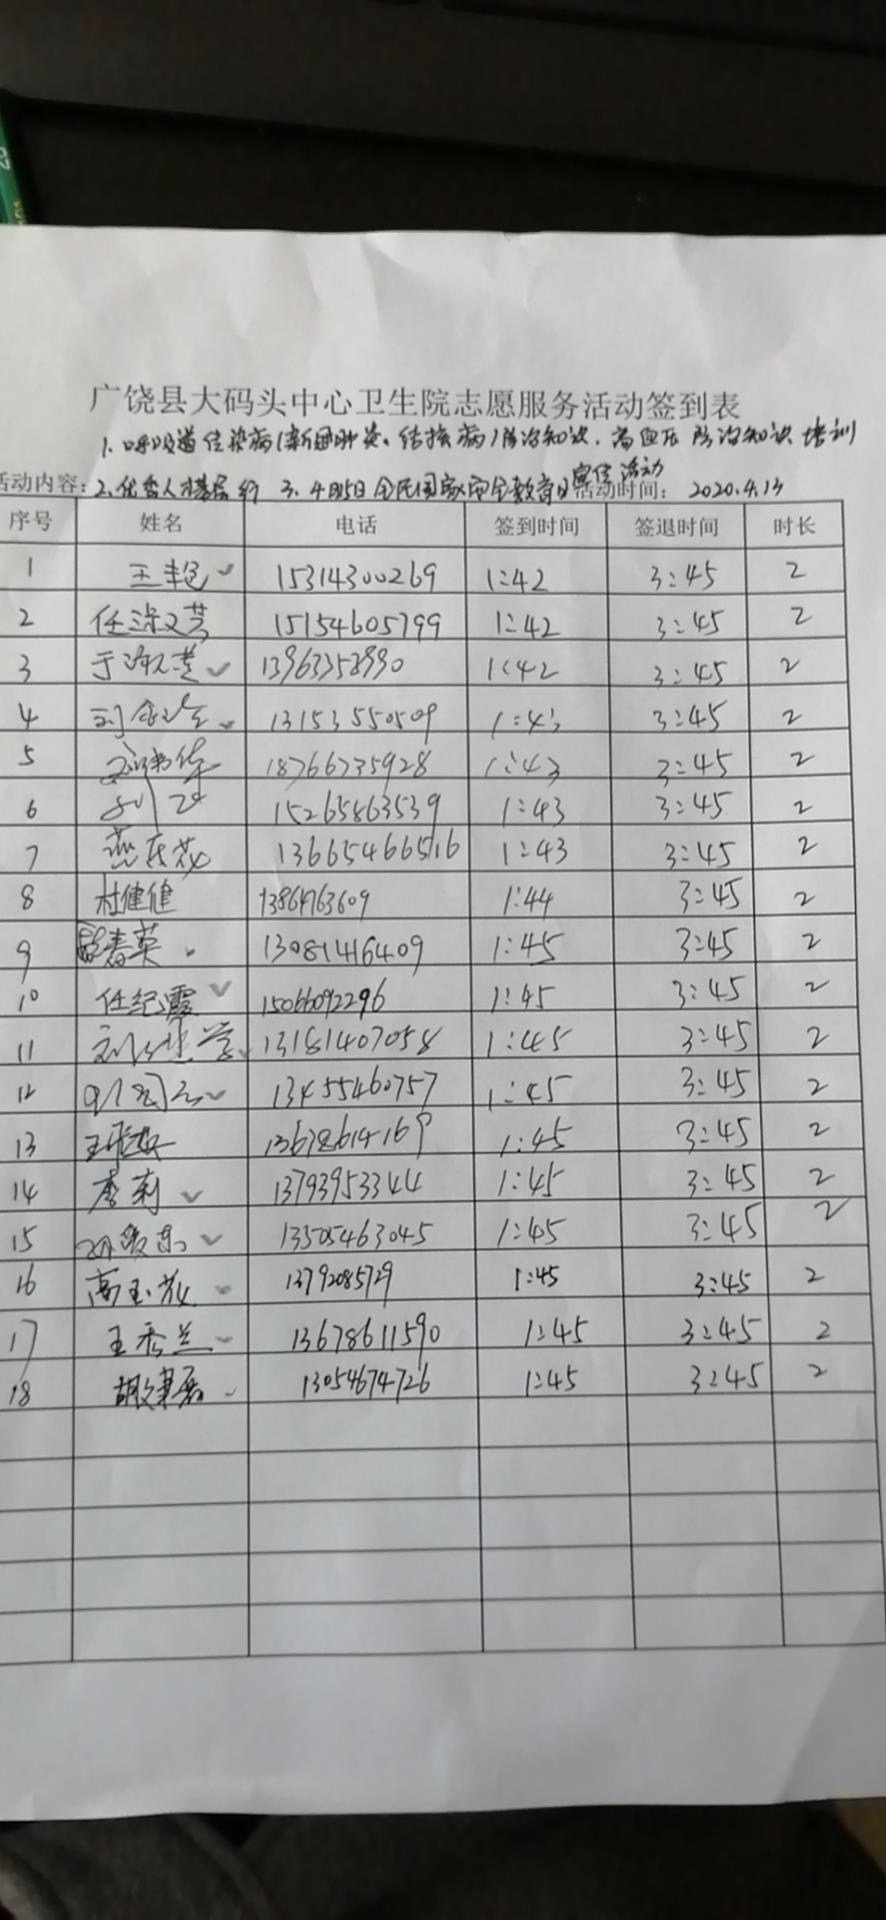 广饶县大码头中心卫生院志愿服务活动签到表
1、呼吸道传染病(新冠肺炎、结核病)防治知识、高血压防治知识培训
活动内容:2、优秀人才基层行 3、4月15日全民国家安全教育日宣传活动 活动时间: 2020.4.13
序号 姓名 电话 签到时间 签退时间 时长
1 王丰色 15314300269 1:42 3:45 2
2 15154605799 1:42 3:45 2
3 13963358990 1:42 3:45 2
4 13153550509 1:43 3:45 2
5 18766735928 1:43 3:45 2
6 15265863539 1:43 3:45 2
7 13665466516 1:43 3:45 2
8 杜健健 13864763609 1:44 3:45 2
9 春英 13081416409 1:45 3:45 2
10 任纪霞 15066092296 1:45 3:45 2
11 13181407058 1:45 3:45 2
12 13455460757 1:45 3:45 2
13 13678614169 1:45 3:45 2
14 李莉 13793953344 1:45 3:45 2
15 13505463045 1:45 3:45 2
16 高玉 13792085729 1:45 3:45 2
17 王秀兰 13678611590 1:45 3:45 2
18 胡建磊 13054674726 1:45 3:45 2